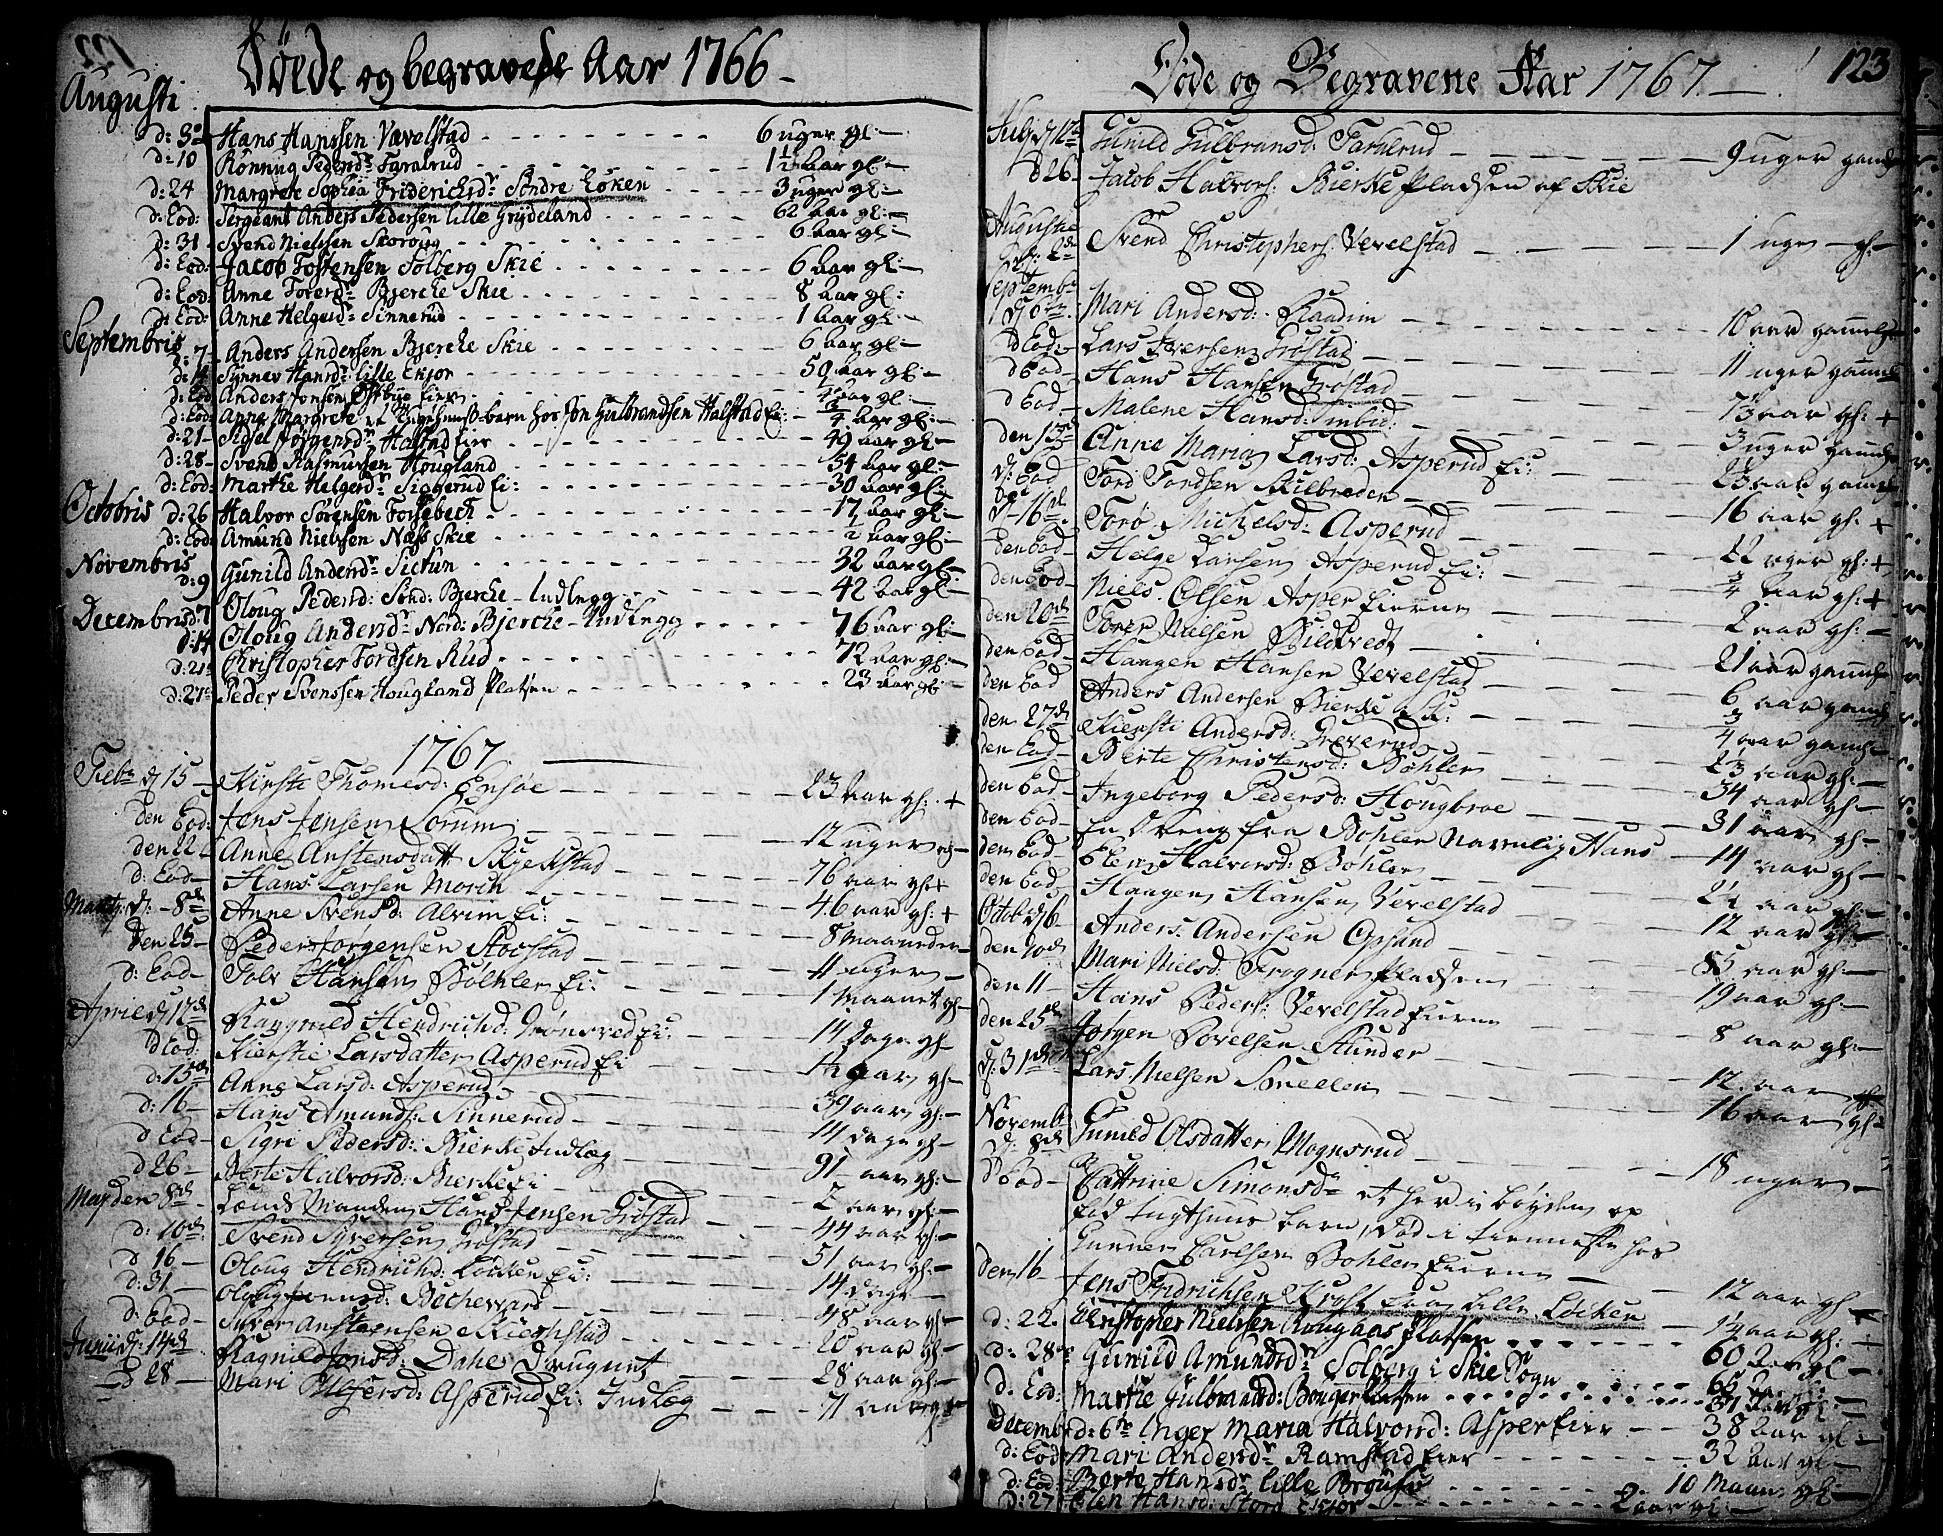 Døede og begravede Aar 1766
Augusti
d: 3 Hans Hanssen Vævelstad - 6 uger gl:
d: 10 Rønnug Pedersd: Taralrud - 1½ Aar gl:
d: 24 Margrete Sophia Friderichsd: Søndre Løken - 3 uger gl:
d: Eod: Sergeant Anders Pedersen Lille Grydeland - 62 Aar gl:
d: 31 Svend Nielssen Skoroug - 6 Aar gl:
d: Eod: Jacob Tostensen Solberg Skie - 6 Aar gl:
d: Eod: Anne Torersd: Bjercke Skie - 8 Aar gl:
d: Eod: Anne Helgesd: Sinnerud - 1 Aar gl:
Septembris
d: 7 Anders Andersen Bjercke Skie - 6 Aar gl:
d: 14 Synnev Hansd: Lille Ekjør - 50 Aar gl:
d: Eod Anders Jonsen Østbye Eier - Aar gl:
d: Eod: Anne Margrete et Tugthuus-barn hos Jon Gulbrandsen Halstad Ei: - ¾ Aar gl:
d: 21 Sidsel Jørgensd: Halstad Eier - 49 Aar gl:
d: 28 Svend Rasmussen Hougland - 54 Aar gl:
d: Eod: Marthe Helgesd: Siggerud Ei: - 30 Aar gl:
Octobris d: 26 Halvor Sørensen Fossebech - 17 Aar gl:
d: Eod: Amund Nielsen Næss Skie - ½ Aar gl:
Novembris
d: 9 Gunild Andersd: Sictun - 32 Aar gl:
Decembris d: 7 Oloug Pedersd: Sønd: Bjercke - Indlegg - 42 Aar gl:
d: 14 Oloug Andersd: Nord: Bjercke - Indlegg - 76 Aar gl:
d: 21 Christopher Tordsen Rud - 72 Aar gl:
d: 27 Peder Svenssen Hougland Platsen - 23 Aar gl:
1767
Febr d 15 Kirsti Thomesd: Ensøe - 23 Aar gl: +
den Eod: Jens Jensen Sorum - 12 uger gl
den 22 Anne Anstensdatt Skjelstad - 76 aar gl: +
d: Eod Hans Larsen Morch - 46 aar gl: +
Martij d: 8de Anne Svensd: Alvim Ei: - 8 maaneder
den 25 Peder Jørgensen Roestad - 11 uger
d: Eod Tolv Hansen Bøhler Ei: - 1 maanet gl
April d 12de Rangnild Hendrichsd: Grønsved Ei: - 14 dage gl
d Eod: Kierstie Larsdatter Asperud Ei - aar gl
d: 15de Anne Larsd: Asperud - 39 aar gl:
d: 16 Hans Amunds: Sinnerud - 14 dage gl
d Eod Sigri Pedersd: Bierke Indlæg - 91 aar gl:
d 26 Berte Halvorsd: Bierke Ei - 2 aar gl:
May den 8de Lænds Manden Hans Jensen Grøstad - 44 aar gl:
d: 10de Svend Syversen Grøstad - 51 aar gl:
d 16 Oloug Hendrichsd: Løcken Ei: - 14 dage
d: 31 Oloug Jensd: Bechevard - 48 aar gl:
d: Eod Syver Anstensen Kierchstad - 20 aar gl:
Junii d: 14de Ragnild Jonsd: Dahl Draugunt - 28 aar gl:
d 28 Mari Ulfersd: Asperud Ei: Indlæg - 71 aar gl
Døde og Begravene Aar 1767 123
Julj d 12te Gunild Gulbransd: Taralrud - 9 uger gamle
d 26 Jacob Halvors: Bierke Pladsen af Skie
Augusti
d: 2de Svend Christophers: Vevelstad - 1 uge gl:
Septemb
d 6te Mari Andersd: Raadim - 10 aar gammel
d Eod: Lars Iversen Grøstad - 11 uger gamle
d Eod Hans Hansen Grøstad - 73 aar gl: +
d Eod Malene Hansd: - 3 uger gamle
den 13de Anne Maria Larsd: Asperud Ei: - 23 aar gamle
d: Eod Tord Tordsen Kilbreden - 16 aar gl: +
d 16de Torø Michelsd: Asperud - 22 uger gl: +
den Eod Helge Larsen Asperud Ei: - ¾ aar gl: +
den Eod Niels Olsen Asper Eierne - 2 aar gl:
den 20de Torer Nielsen Bildkredt - 21 aar gamle
den Eod Haagen Hansen Vevelstad - 6 aar gamle
den Eod Anders Andersen Bierke Sk: - ¾ aar gamle
den 27de Kiersti Andersd: Greverud - 23 aar gl:
den Eod Berte Christensd: Bøhler - 34 aar gl
den Eod Ingeborg Pedersd: Hougbroe - 31 aar gl
den Eod En Dreng fra Bøhler Navnlig Hans - 14 aar gl
den Eod Elen Halvorsd: Bøhler - 24 aar gl:
den Eod Haagen Hansen Vevelstad - 12 aar gl:
Octob d 6 Anders Andersen Opsand - 55 aar gl:
den 10de Mari Nielsd: Frogner Pladsen - 19 aar gl:
den 11 Hans Peders: Vevelstad Eierne - 8 aar gl:
den 25de Jørgen Povelsen Runder - 12 aar
d: 31de Lars Nielsen Smeelen - 16 aar gl:
Novemb
d: 8de Gunild Olsdatter Mognsrud - 18 uger
d Eod Cattrine Simonsdr et her i bøyden op
fød tugthuus barn, Død i tienneste hos
Gunner Carlsen Bohler Eierne
den 16 Jens Fridrichsen Kraft paa Lille Løcken - 12 aar gl
d: 22. Christopher Nielssen Kougaas Platsen - 14 aar gl:
d: 28 Gunild Amundsdr Solberg i Skie Sogn - 60 Aar gl
d: Eod: Marthe Gulbrandsd: Bonger Platsen - 31 Aar gl
Decembr d: 6te Inger Maria Halvorsd: Asper Eier - 38 Aar gl
d: Eod: Mari Andersdr Ramstad Eier - 32 Aar gl
d: Eod: Berte Hansdr Lille Borguse - 10 Maan gl
d: 27 Elen Hansd: Store Eskjør - 2 aar gl: